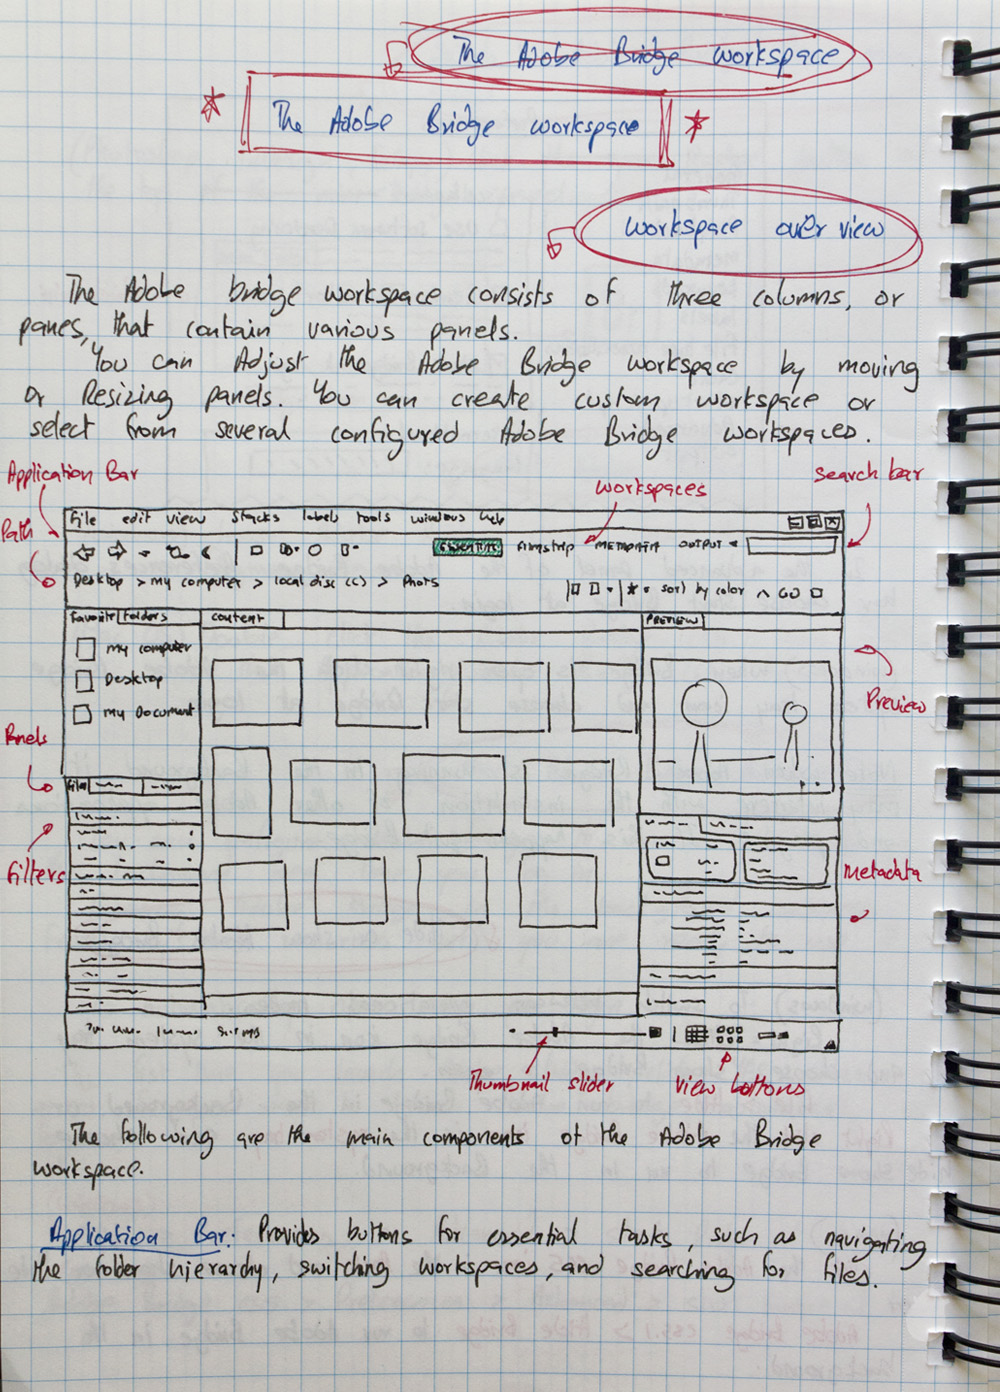 The Adobe Bridge workspace
The Adobe Bridge workspace
workspace overview
The Adobe bridge workspace consists of three columns, or
panes, that contain various panels.
You can Adjust the Adobe Bridge workspace by moving
or Resizing panels. You can create custom workspace or
select from several configured Adobe Bridge workspaces.
Application Bar
workspaces
search bar
Path
File edit view Stacks labels tools windows help
ESSENTIALS FILMSTRIP METADATA OUTPUT
Desktop > my computer > local disc (c) > Phots
sort by color
Favorite Folders
content
PREVIEW
my computer
Desktop
my Document
Preview
Panels
Filters
Metadata
Thumbnail slider
view buttons
The following are the main components of the Adobe Bridge
workspace.
Application Bar: Provides buttons for essential tasks, such as navigating
the folder hierarchy, switching workspaces, and searching for files.